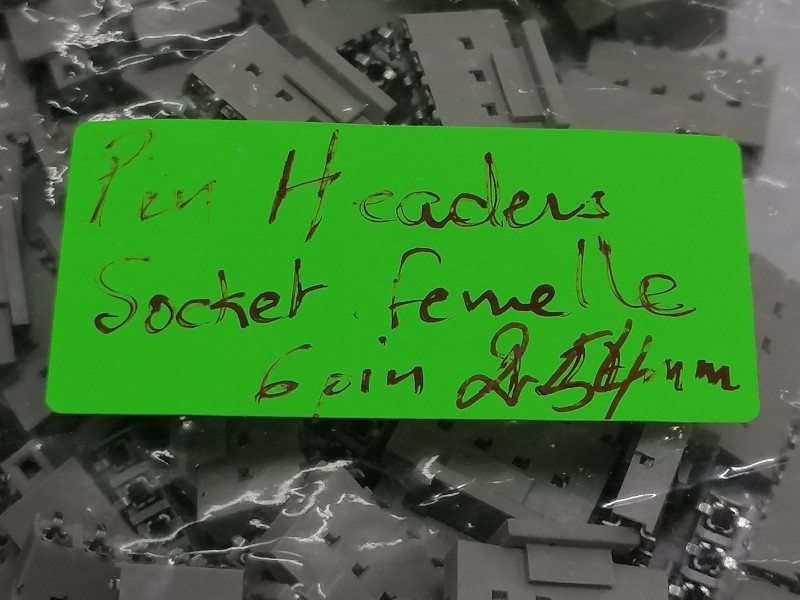 Pin Headers
Socket femelle
6 pin 2.54mm